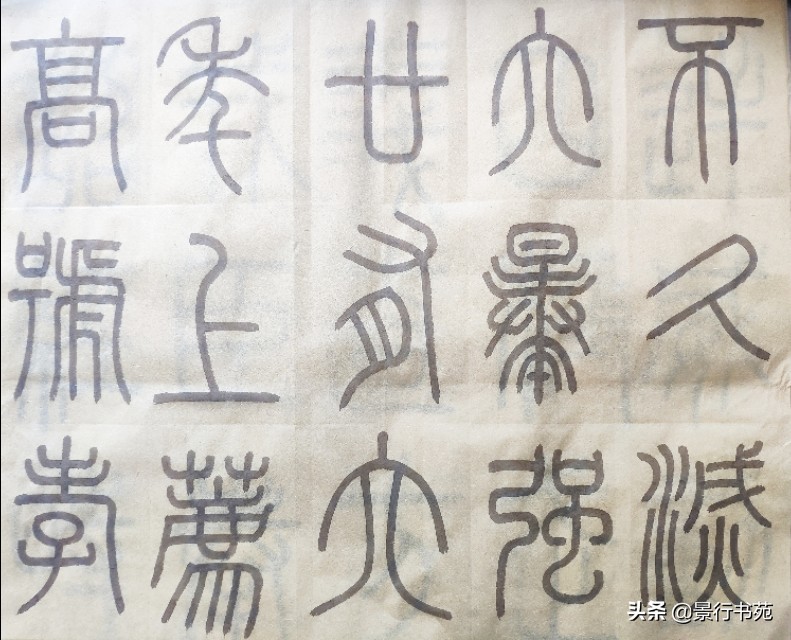 不久滅
六暴强
廿有六
年上薦
高號孝
头条 @景行书苑